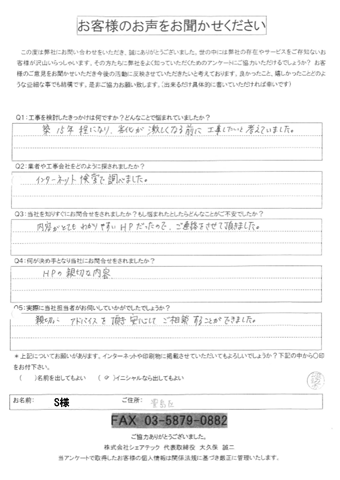 お客様のお声をお聞かせください
この度は弊社にお問い合わせをいただき、誠にありがとうございました。世の中には弊社の存在やサービスをご存知ないお
客様が沢山いらっしゃいます。その方たちに弊社をよく知っていただくためのアンケートにご協力いただけるでしょうか？お
客様のご意見をお聞かせいただき今後の活動に反映させていただきたいと考えております。良かったこと、嬉しかったことどのよ
うな些細な事でも結構です。是非ご協力お願い致します。(出来るだけ具体的に書いていただければ幸いです)
Q1:工事を検討したきっかけは何ですか？どんなことで悩まれていましたか？
築15年程になり、劣化が激しくなる前に工事したいと考えていました。
Q2:業者や工事会社をどのように探されましたか？
インターネット検索で調べました。
Q3:当社を知りすぐにお問合せをされましたか？もし悩まれたとしたらどんなことがご不安でしたか？
内容がとてもわかりやすいHPだったので、ご連絡させて頂きました。
Q4:何が決め手となり当社にお問合せをされましたか？
HPの親切な内容
Q5:実際に当社担当者がお伺いしていかがでしたでしょうか？
親切にアドバイスを頂き安心してご相談することができました。
＊上記についてお願いがあります。インターネットや印刷物に掲載させていただいてもよろしいでしょうか？下記の中から○印
をお付下さい。
(　)名前を出してもよい　(○)イニシャルなら出してもよい
お名前: S様 ご住所:
FAX 03-5879-0882
ご協力ありがとうございました。
株式会社シェアテック 代表取締役 大久保 誠二
当アンケートで取得したお客様の個人情報は関係法規に基づき厳正に管理いたします。